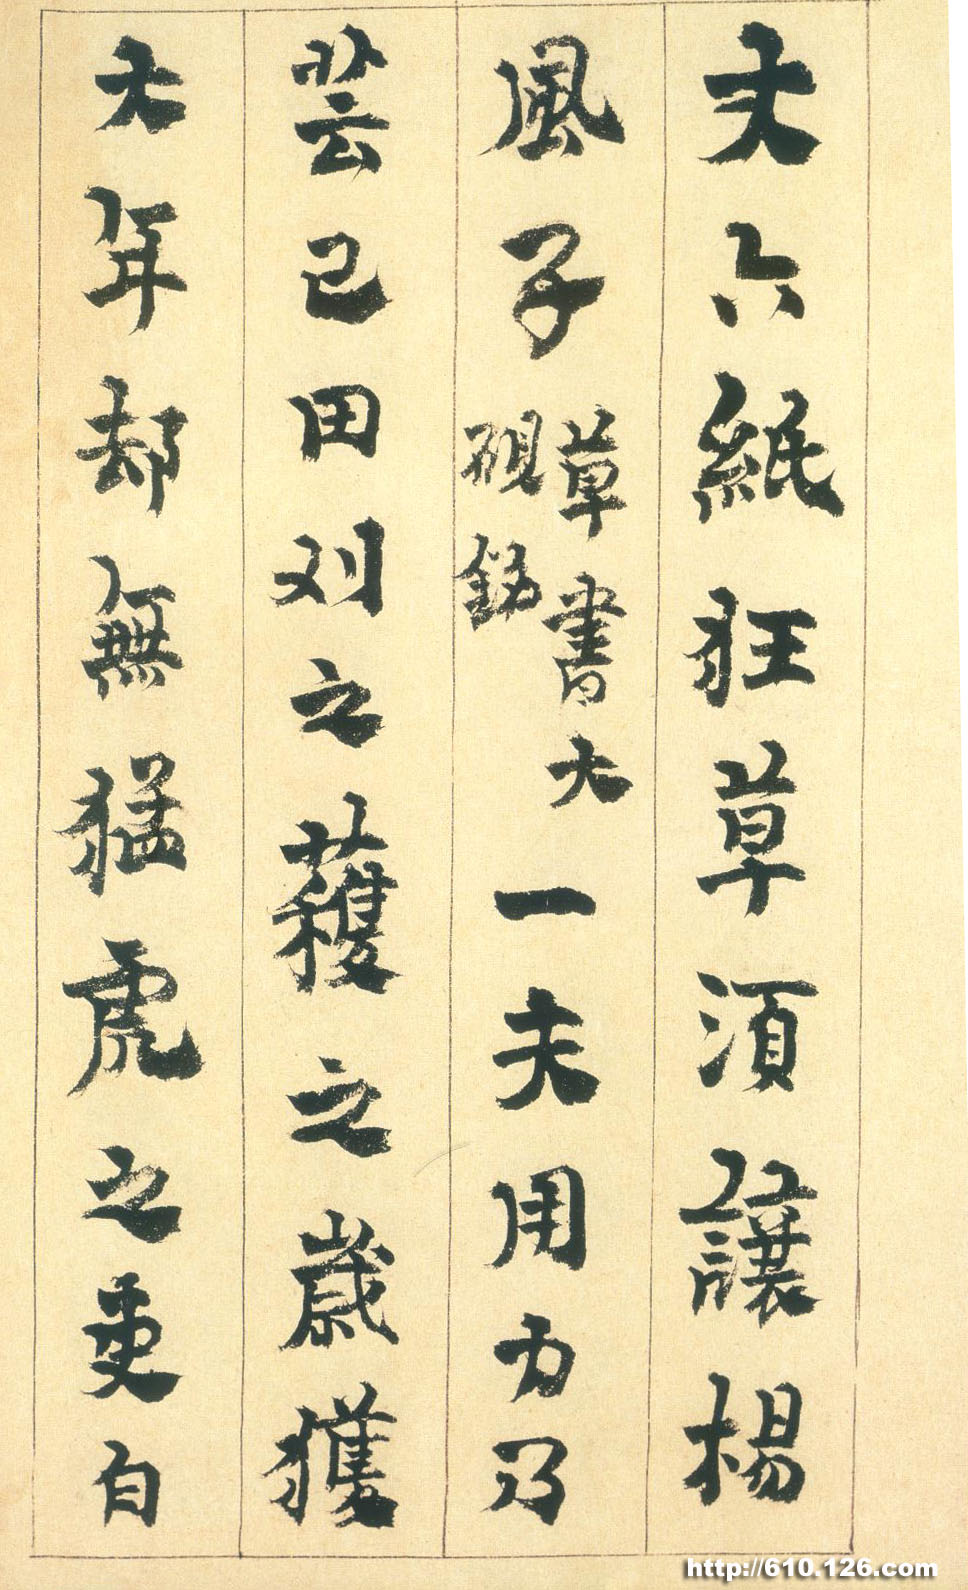 丈六紙狂草須讓楊
風子
草書大
硯銘
一夫用力乃
芸己田刈之穫之歲獲
大年却無猛虎之吏自
http://610.126.com